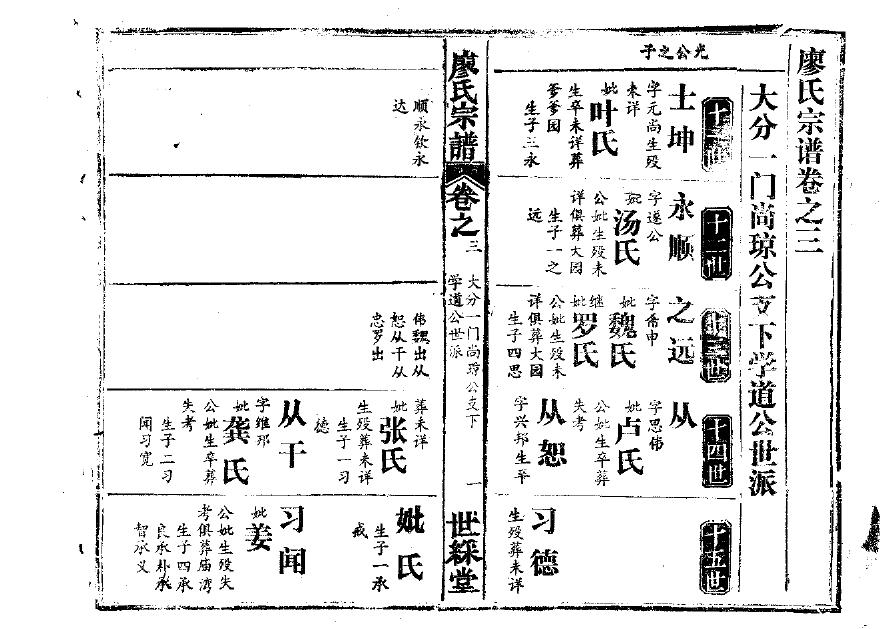 廖氏宗谱卷之三
大分一门尚琼公支下学道公世派
光公之子
十一世
士坤
字元尚生殁
未详
妣叶氏
生卒未详葬
爹爹园
生子三永
顺永钦永
达
十二世
永顺
字遂公
妣汤氏
公妣生殁未
详俱葬大园
生子一之
远
十三世
之远
字希申
妣魏氏
继妣罗氏
公妣生殁未
详俱葬大园
生子四思
伟魏出从
恕从干从
忠罗出
十四世
从
字思伟
妣卢氏
公妣生卒葬
失考
从恕
字兴邦生平
葬未详
妣张氏
生殁葬未详
生子一习
德
从干
字维邦
妣龚氏
公妣生卒葬
失考
生子二习
闻习宽
十五世
习德
生殁葬未详
妣氏
生子一承
戒
习闻
妣姜
公妣生殁失
考俱葬庙湾
生子四承
良承朴承
智承义
廖氏宗譜
卷之三
大分一门尚琼公支下
学道公世派
一
世綵堂